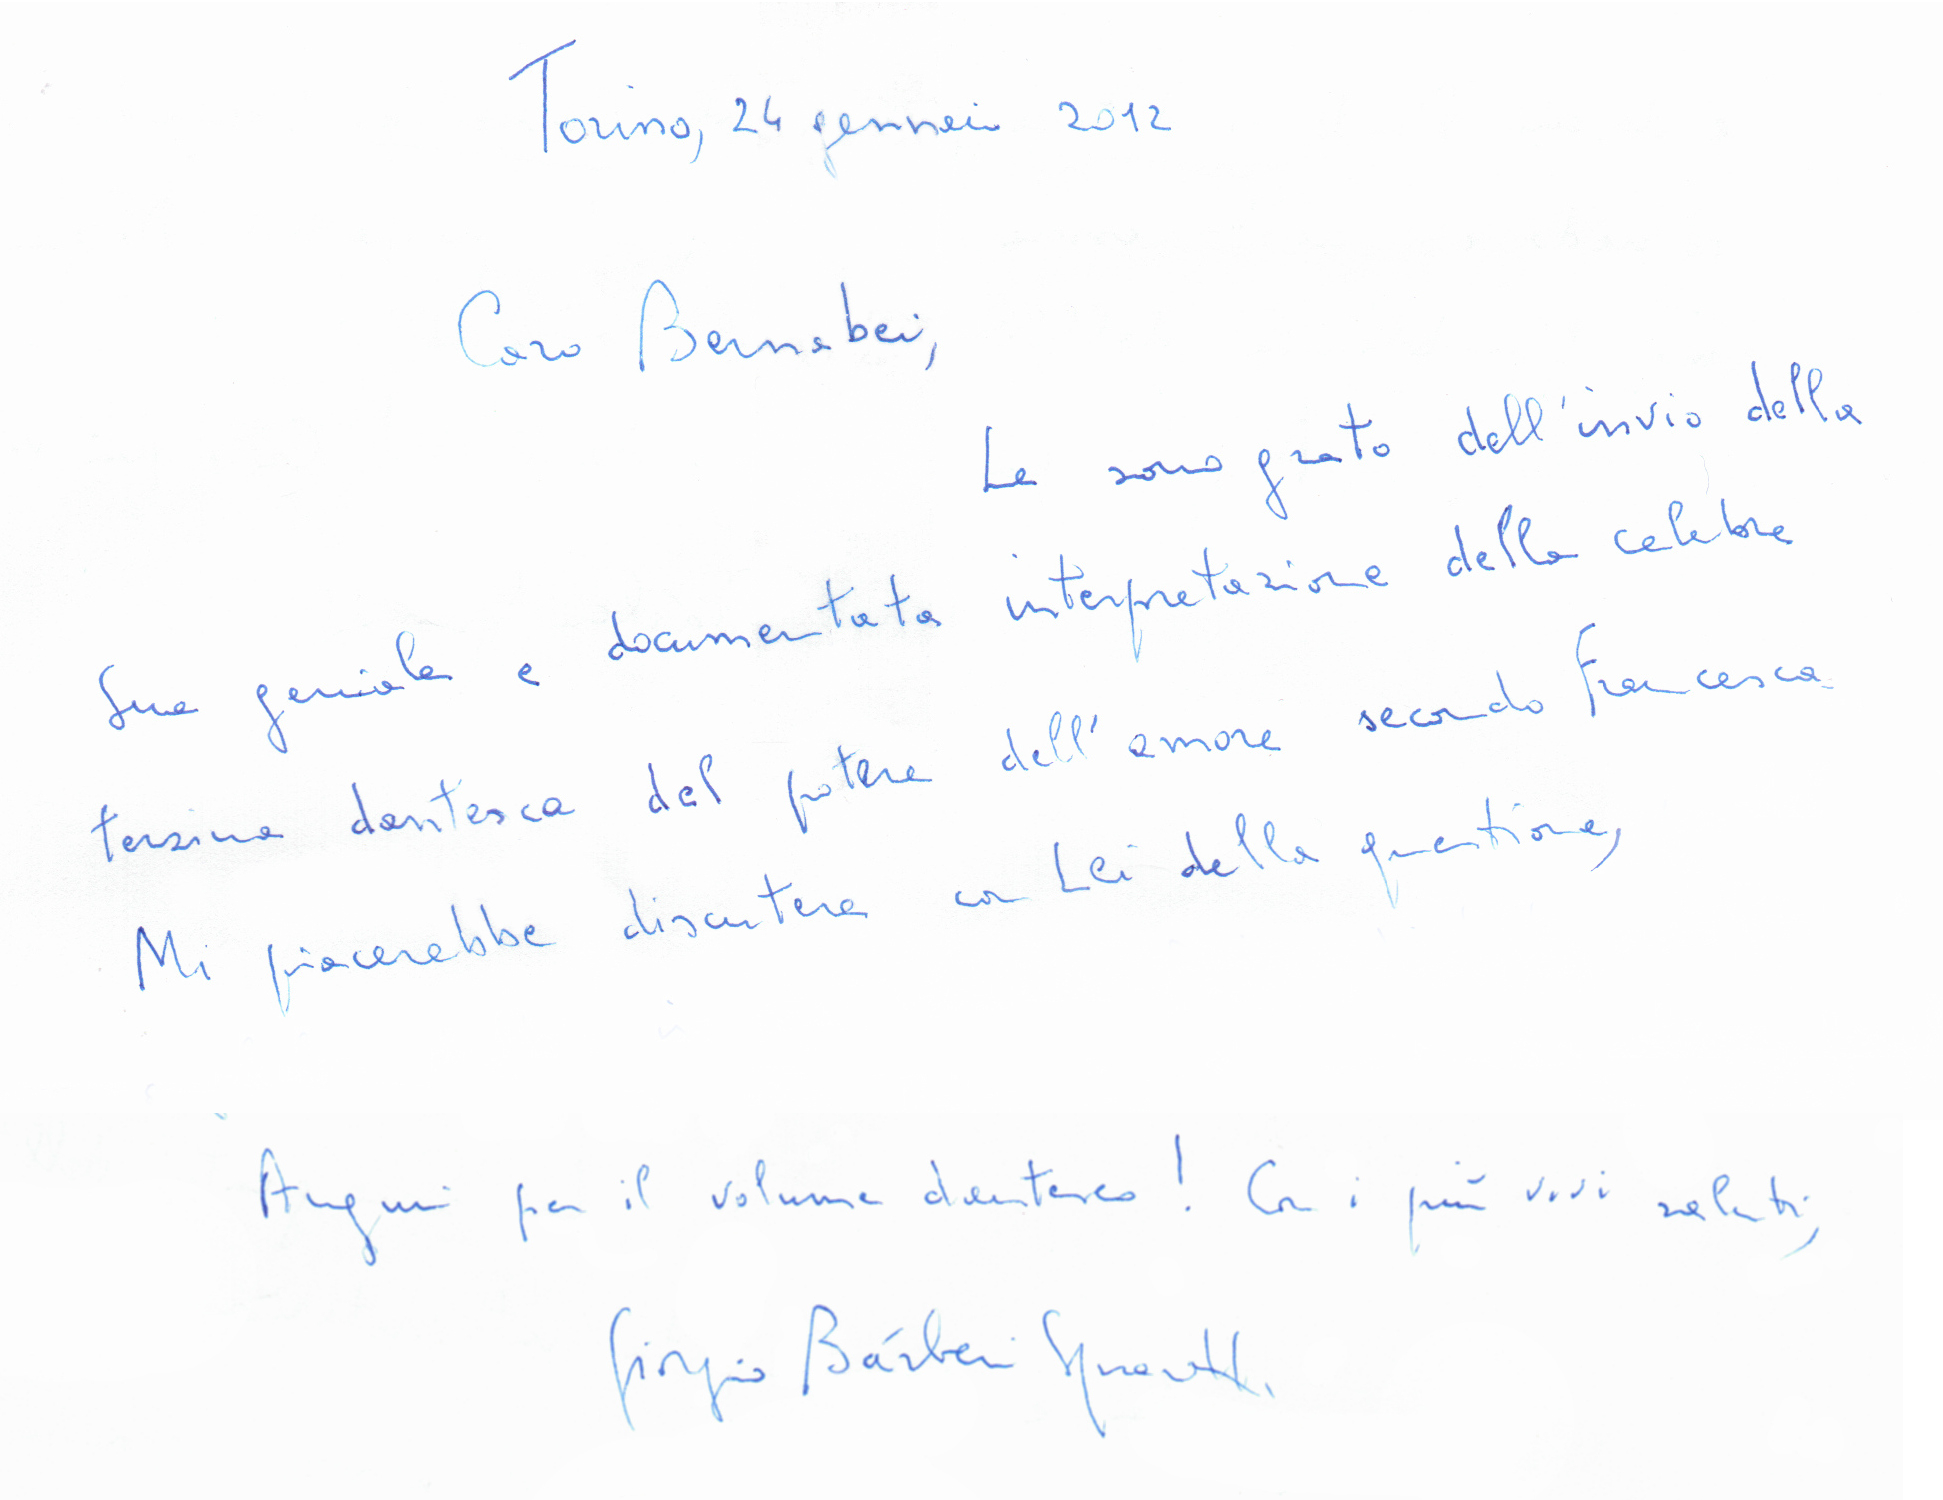 Torino, 24 gennaio 2012
Caro Bernabei,
Le sono grato dell'invio della
Sua geniale e documentata interpretazione della celebre
terzina dantesca del potere dell'amore secondo Francesca.
Mi piacerebbe discutere con Lei della questione,
Auguri per il volume dantesco! Con i più vivi saluti,
Giorgio Bárberi Squarotti